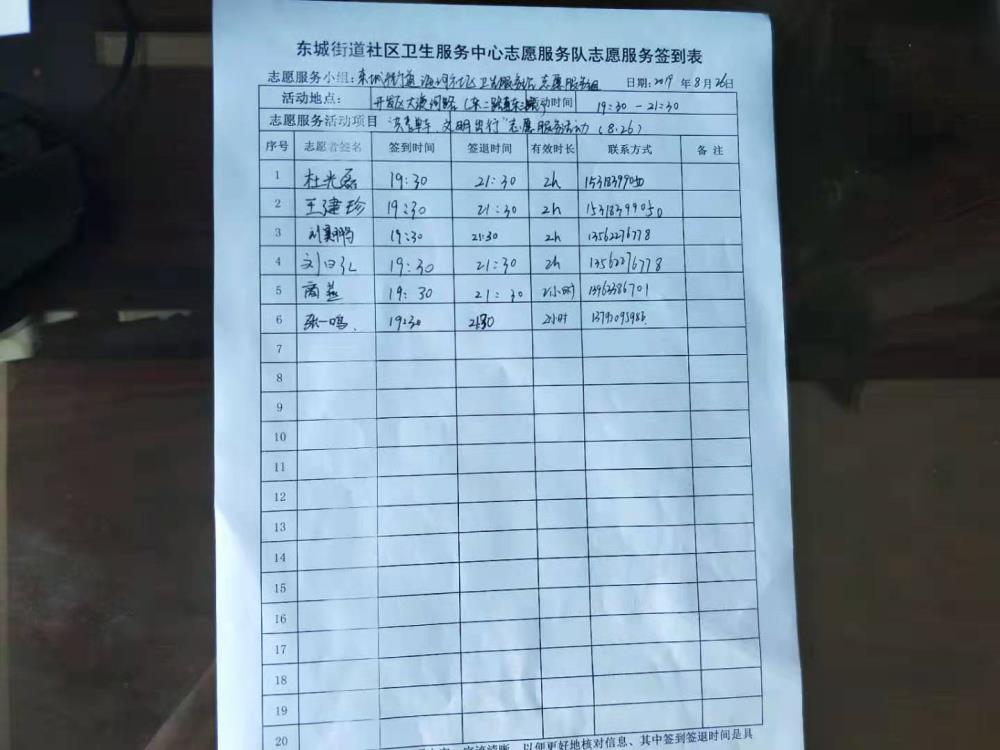 东城街道社区卫生服务中心志愿服务队志愿服务签到表
志愿服务小组：东城街道 社区卫生服务站志愿服务组 日期：2019 年 8 月 26 日
活动地点： 开发区大渡河路（东二路 活动时间 19：30 － 21：30
志愿服务活动项目 "共享单车，文明出行"志愿服务活动（8.26）
序号 志愿者签名 签到时间 签退时间 有效时长 联系方式 备 注
1 杜光磊 19：30 21：30 2h
2 王建珍 19：30 21：30 2h 15318399050
3 19：30 21：30 2h 13562276778
4 19：30 21：30 2h 13562276778
5 商燕 19：30 21：30 2小时
6 张一鸣 19：30 21：30 2小时
7
8
9
10
11
12
13
14
15
16
17
18
19
20
字迹清晰，以便更好地核对信息、其中签到签退时间是具